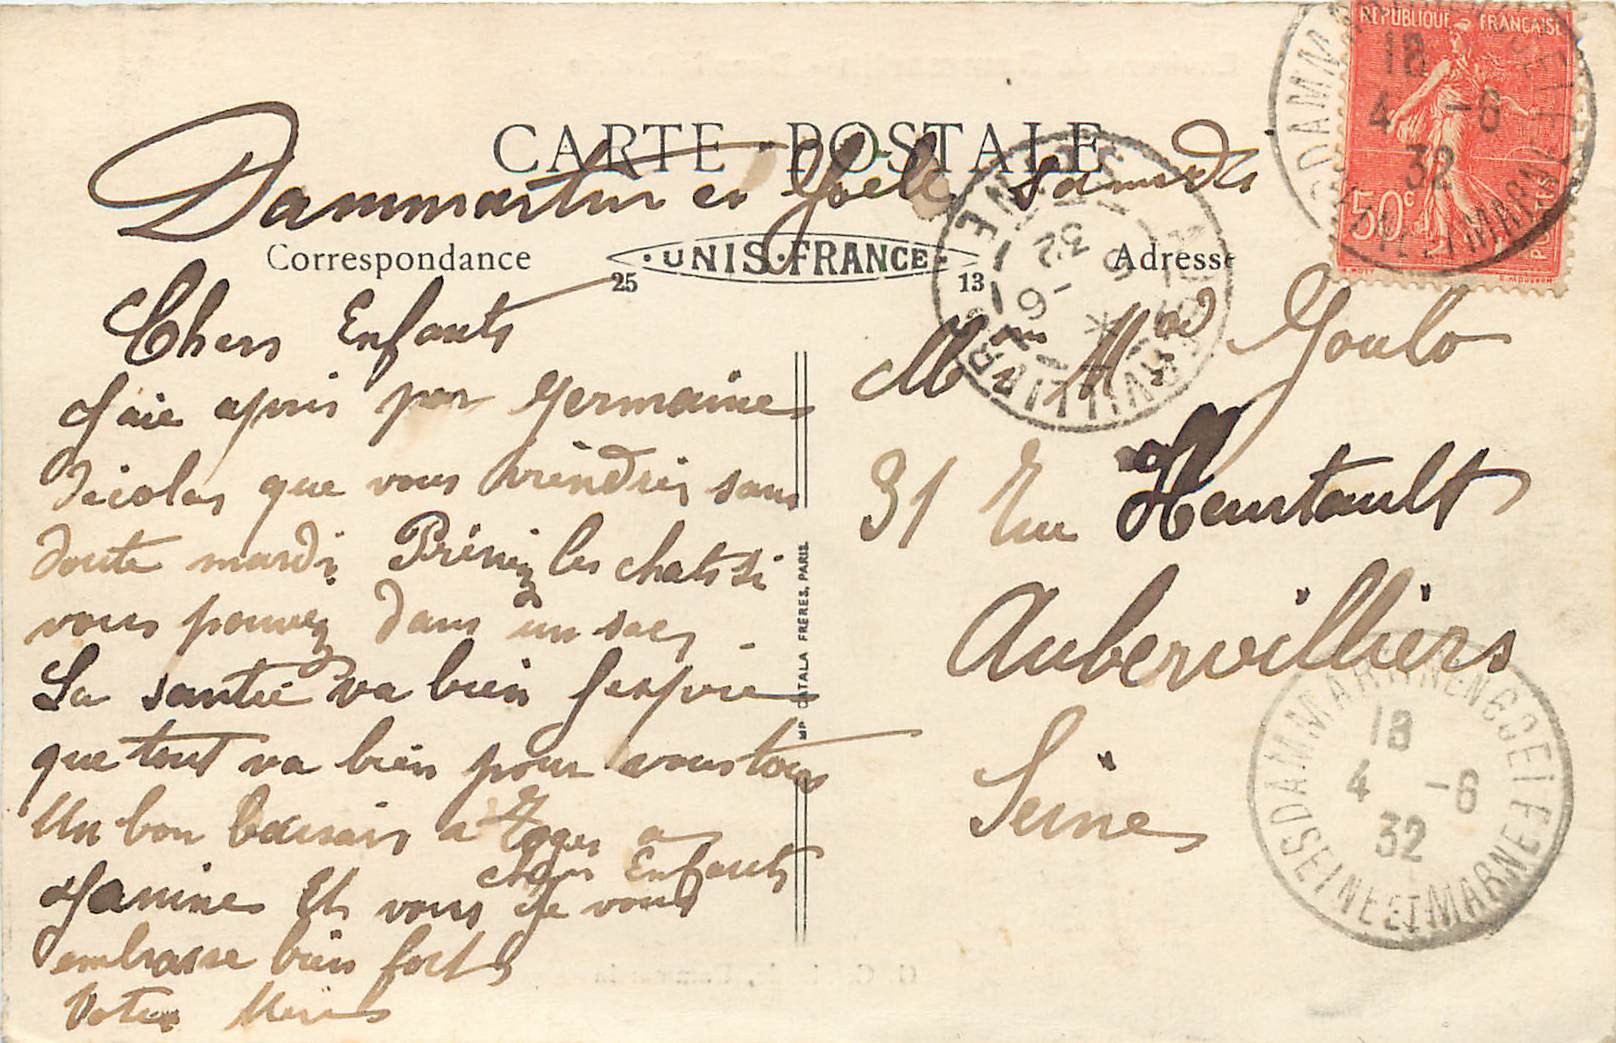 CARTE POSTALE
Dammartin en Goele samedi
Correspondance
UNIS·FRANCE
25
13
Adresse
Chers Enfants
J'aie apris par Germaine
Nicolas que vous viendriez sans
doute mardi. Prenez les chats si
vous pouvez dans un sac,
La santée va bien J'espoire
que tout va bien pour vous tous
Un bon baisais a Roger a
Janine Et vous chers Enfants
je vous
embrasse bien fort
Votre Mère
MP CATALA FRERES, PARIS.
Mr Mme Goulo
31 Rue Heurtault
Aubervilliers
Seine
REPUBLIQUE FRANÇAISE
50c
POSTES
18
4 -6
32
DAMMARTIN-EN-GOELE
SEINE ET MARNE
AUBERVILLIERS
SEINE
6 -6
32
DAMMARTIN-EN-GOELE
18
4 -6
32
SEINE ET MARNE